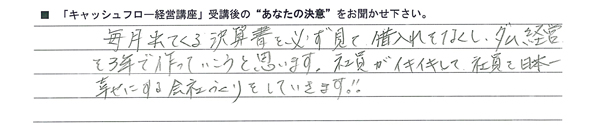 ■ 「キャッシュフロー経営講座」受講後の“あなたの決意”をお聞かせ下さい。
毎月出てくる決算書を必ず見て借入れをなくし、ダム経営
を3年で作っていこうと思います。社員がイキイキして社員を日本一
幸せにする会社づくりをしていきます!!